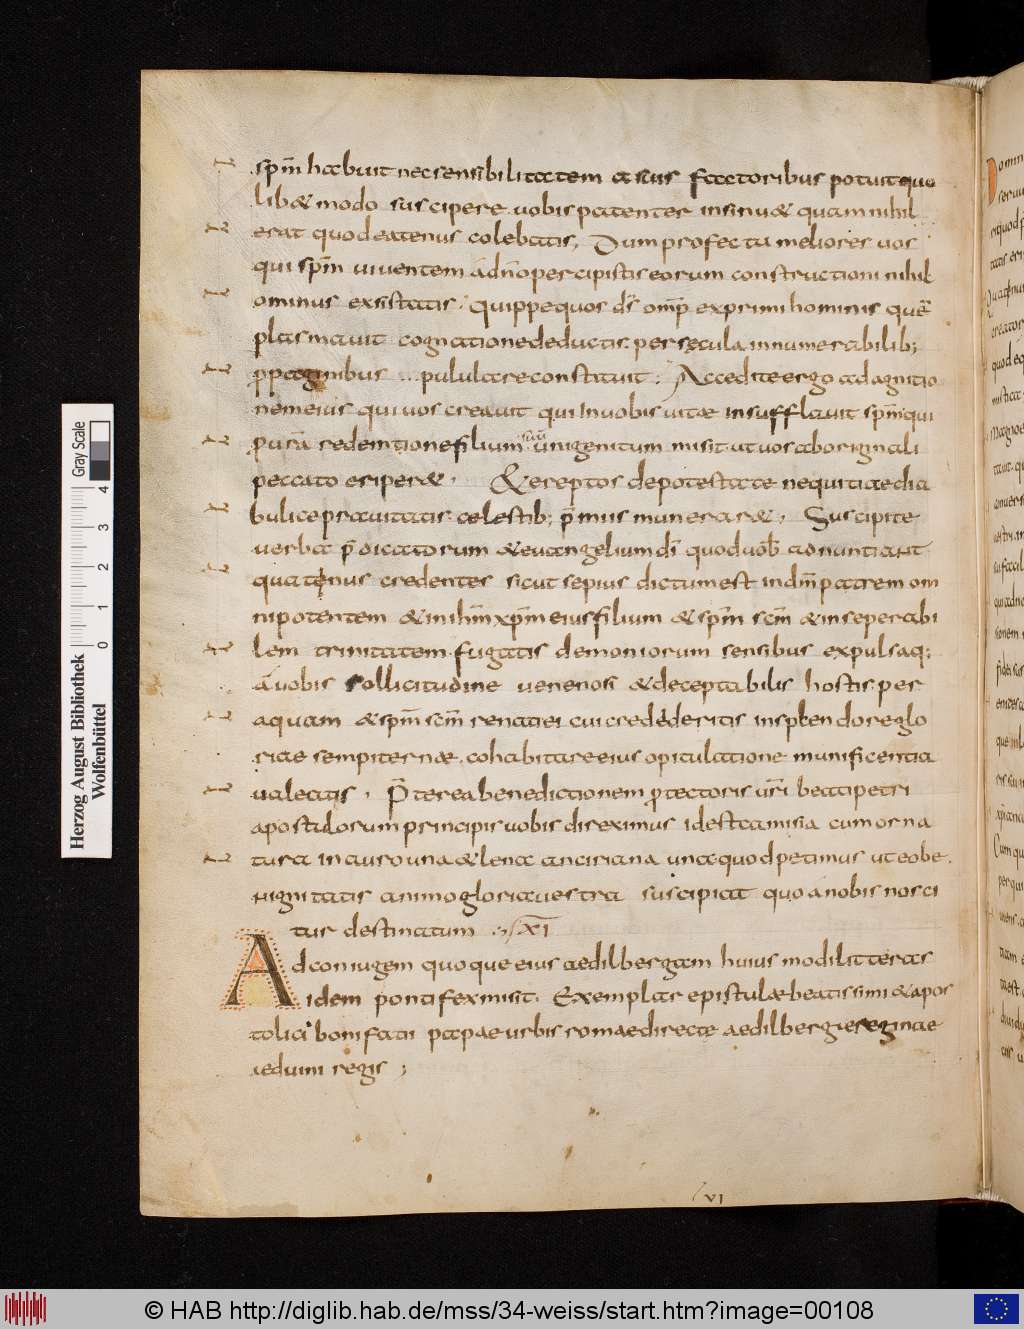 sp̄m habuit nec sensibilitatem a suis factoribus potuit quo
lib& modo suscipere uobis patenter insinu& quam nihil
erat quod eatenus colebatis; Dum profecta meliores uos
qui sp̄m uiuentem a dn̄o percipistis eorum constructioni nihil
ominus exsistatis. Quippe quos d̄s om̄p exprimi hominis quē
plasmauit cognatione deductis per sęcula innumerabilib;
ppaginibus pululare constituit; Accedite ergo ad agnitio
nem eius qui uos creauit qui In uobis uitae insufflauit sp̄m qui
p urā redemtione filium suū unigenitum misit ut uos ab originali
peccato eriper&. & ereptos de potestate nequitiae dia
bulice prauitatis celestib; p̄miis munerar&. Suscipite
uerba p̄dicatorum & euangelium dī quod uob̄ adnuntiant
quatenus credentes sicut sepius dictum est in dm̄ patrem om
nipotentem & in ihm̄ xpm̄ eius filium & sp̄m sc̄m & inseperabi
lem trinitatem. fugatis demoniorum sensibus expulsaq;
a uobis sollicitudine uenenosi & deceptabilis hostis. per
aquam & sp̄m sc̄m renati ei cui credederitis in splendore glo
riae sempiternae. cohabitare eius opitulatione munificentia
ualeatis. P̄terea benedictionem ptectoris ur̄i beati petri
apostulorum principis uobis direximus id est camisia cum orna
tura in auro una & lena anciriana una quod petimus ut eobe
nignitatis animo gloria uestra suscipiat quo a nobis nosci
tur destinatum. XI
Ad coniugem quoque eius aedilbergam huius modi litteras
idem pontifex misit. Exemplar epistulae beatissimi & apos
tolici bonifatii papae urbis romae directe aedilberge reginae
aeduini regis;
VI
Herzog August Bibliothek
Wolfenbüttel
0 1 2 3 4
Gray Scale
© HAB http://diglib.hab.de/mss/34-weiss/start.htm?image=00108